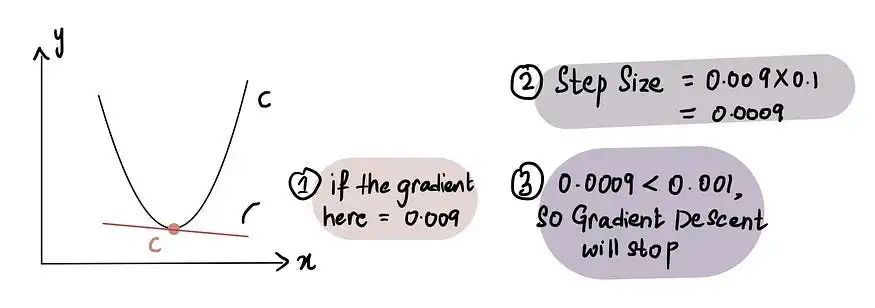 y
C
① if the gradient
here = 0.009
C
x
② Step Size = 0.009 X 0.1
= 0.0009
③ 0.0009 < 0.001,
so Gradient Descent
will stop